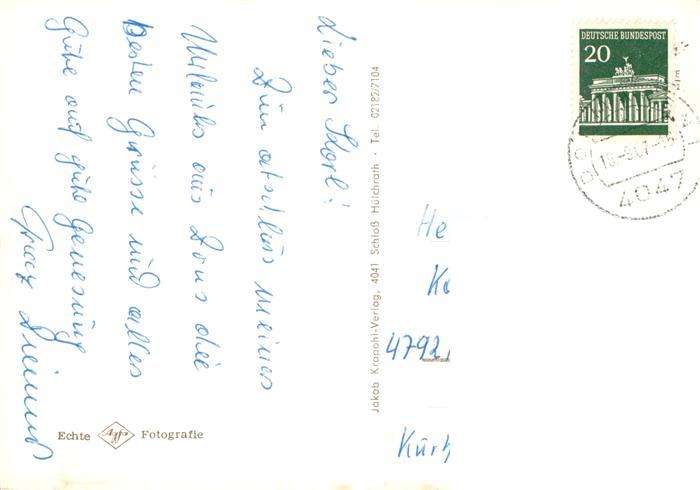 Lieber Karl!
Zum abschluss meines
Urlaubs aus Zons die
besten Grüsse und alles
Gute auf gute Genesung
Franz
Echte Agfa Fotografie
Jakob Krapohl-Verlag, 4041 Schloß Hülchrath · Tel. 02182/7104
DEUTSCHE BUNDESPOST
20
4047
He
Ka
4792
Kurh